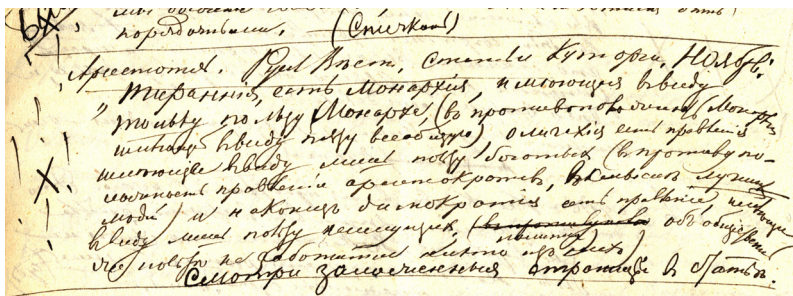 порядочными. (Спичкой)
Аристотель. Русс Вѣст, статьи Куторги, Ноябрь.
„Тираннія, есть Монархія, имѣющая ввиду
только пользу Монарха, (въ противоположность Монархіи
имѣющей ввиду пользу всеобщую) олигархія есть правленіе
имѣющее ввиду лишь пользу богатыхъ (въ противупо-
ложность правленію аристократовъ, лучшихъ
людей) и наконецъ демократія есть правленіе, имѣющее
ввиду лишь пользу неимущихъ, объ общественной
же пользѣ не заботится никто изъ нихъ)
Смотри замѣченныя страницы в статьѣ.